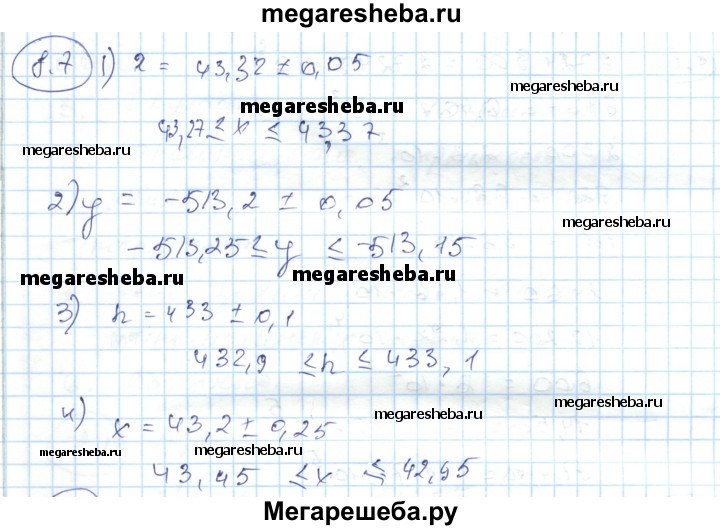 megaresheba.ru
8.7 1) x = 43,32 ± 0,05
megaresheba.ru
megaresheba.ru
43,27 ≤ x ≤ 43,37
megaresheba.ru
2) y = -513,2 ± 0,05
megaresheba.ru
-513,25 ≤ y ≤ -513,15
megaresheba.ru
megaresheba.ru
3) h = 433 ± 0,1
432,9 ≤ h ≤ 433,1
4) x = 43,2 ± 0,25
megaresheba.ru
megaresheba.ru
43,45 ≤ x ≤ 42,95
megaresheba.ru
Мегарешеба.ру